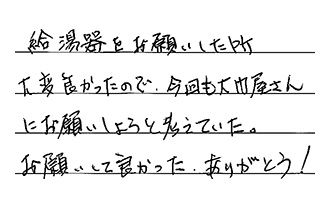 給湯器をお願いした所
大変良かったので、今回も大巾屋さん
にお願いしようと考えていた。
お願いして良かった、ありがとう!